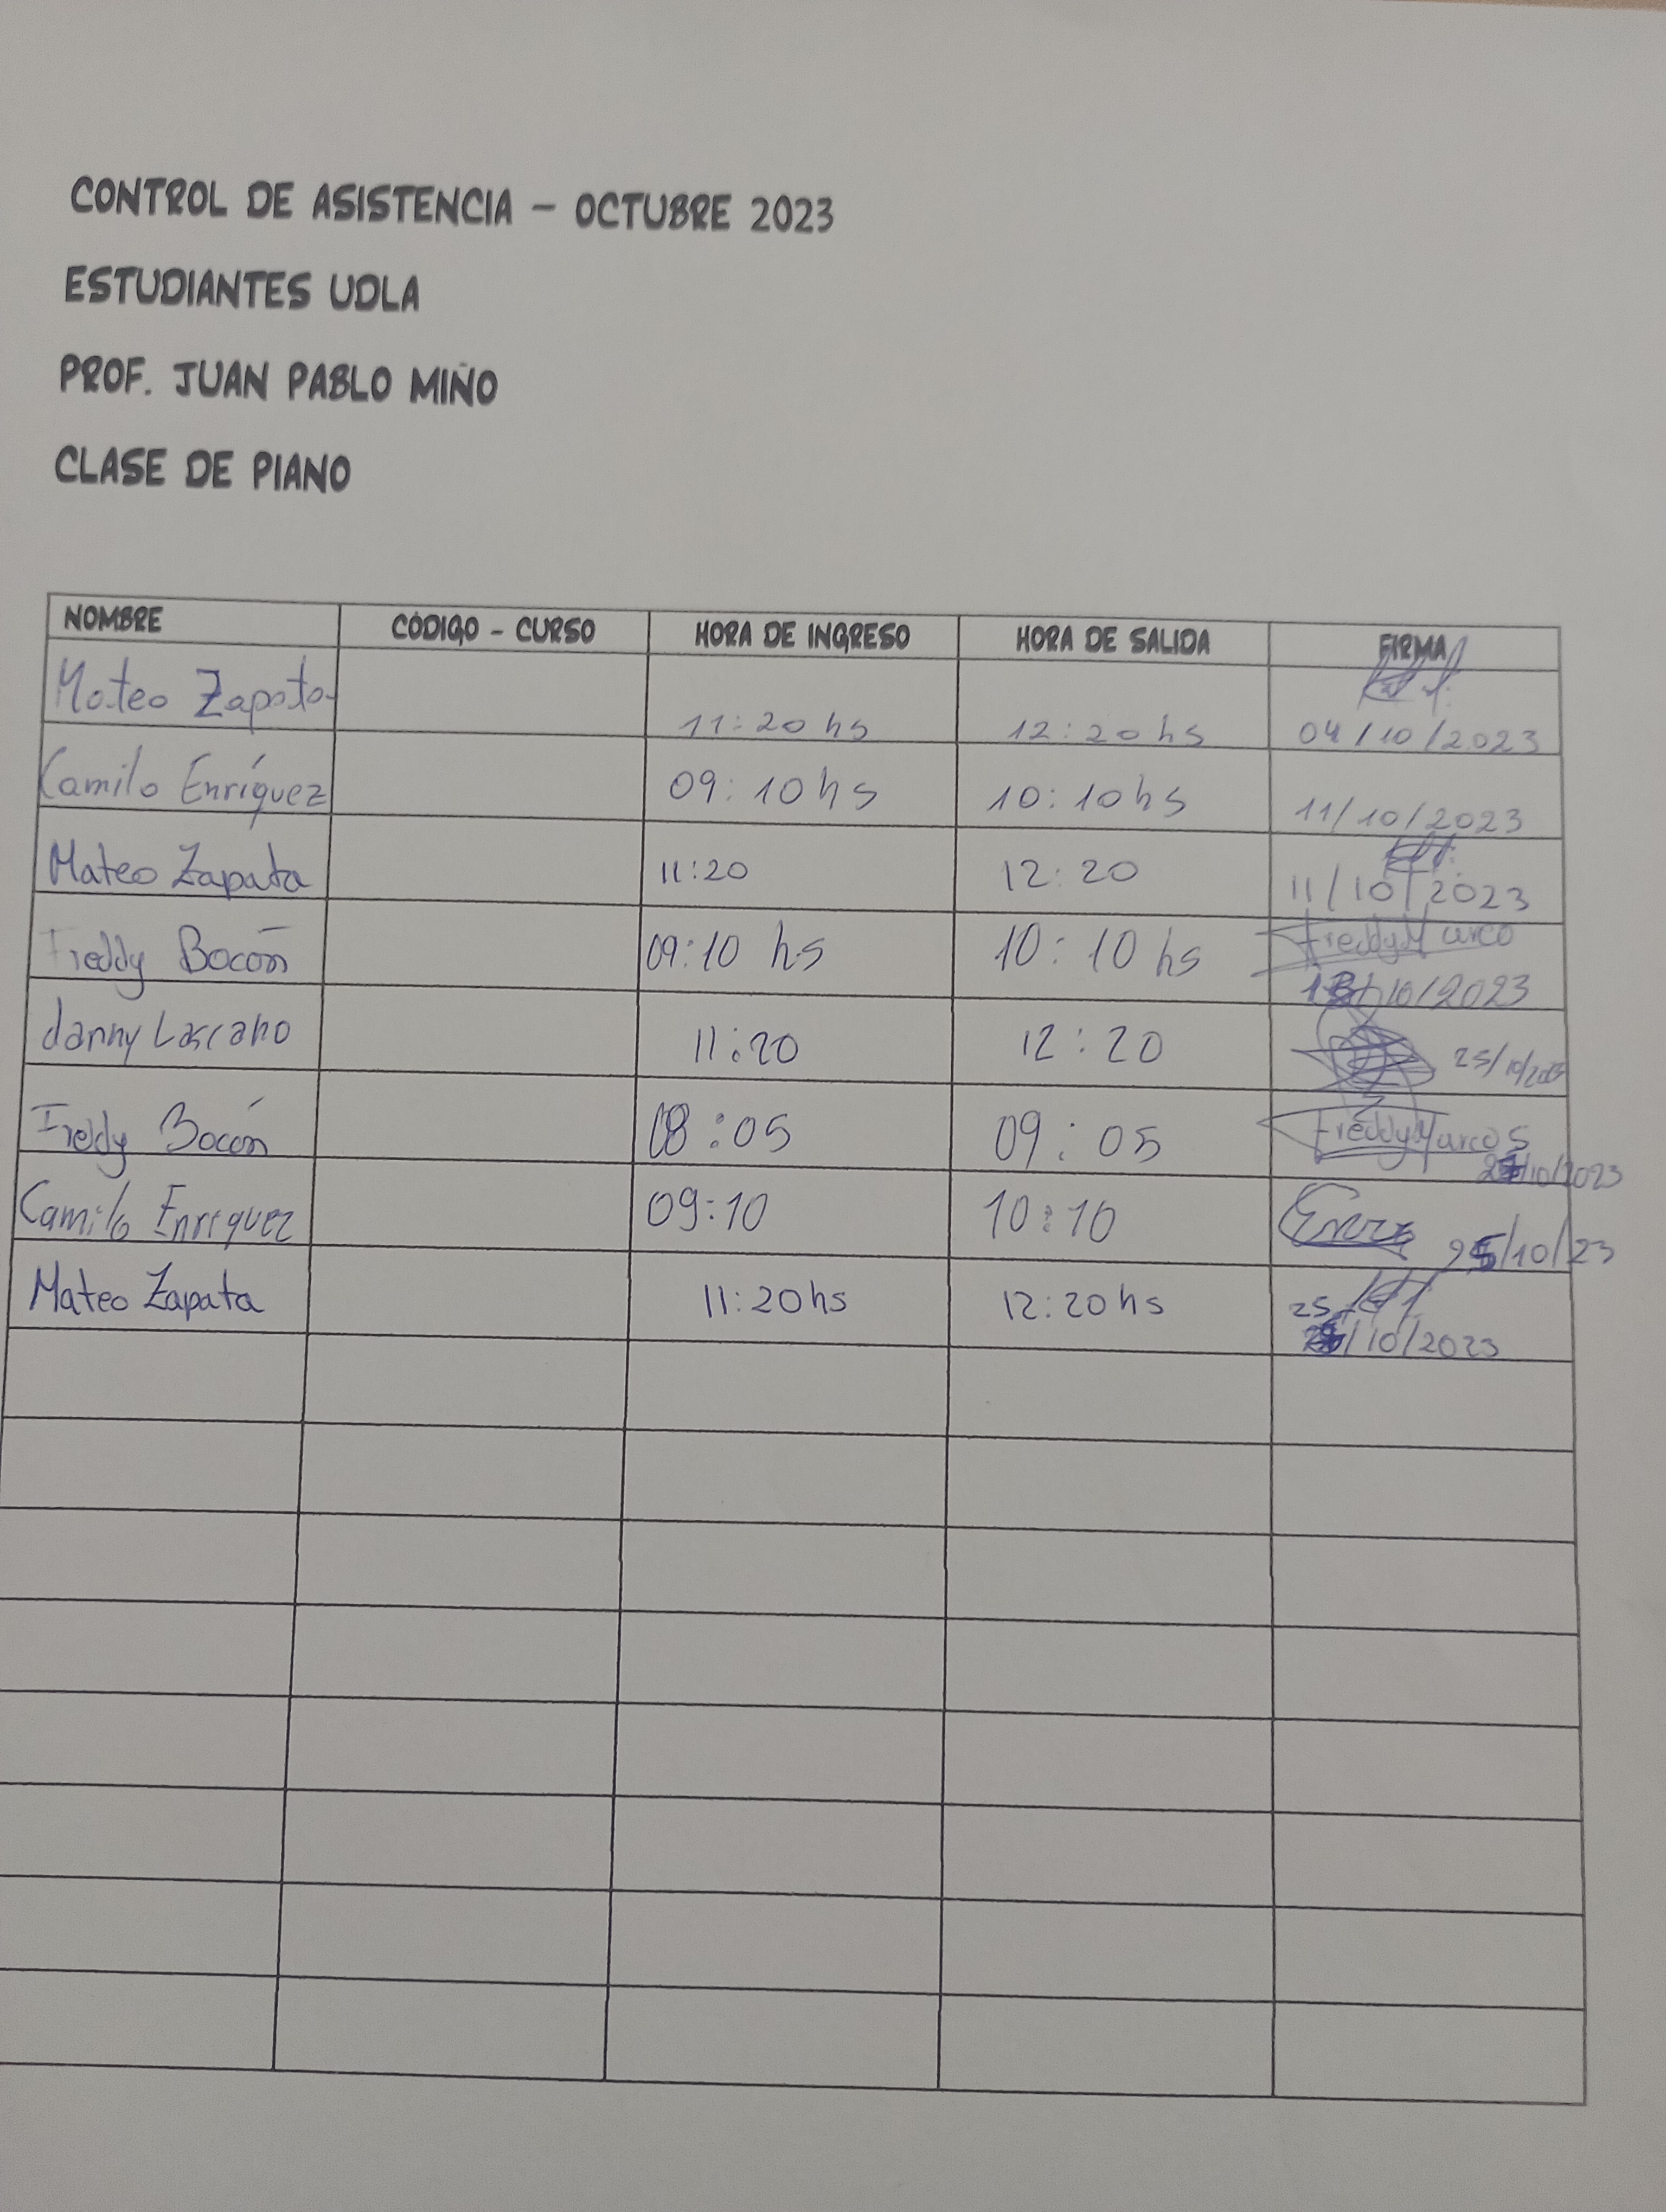 CONTROL DE ASISTENCIA – OCTUBRE 2023
ESTUDIANTES UDLA
PROF. JUAN PABLO MIÑO
CLASE DE PIANO
NOMBRE CÓDIGO – CURSO HORA DE INGRESO HORA DE SALIDA FIRMA
Mateo Zapata 11:20 hs 12:20 hs 04/10/2023
Camilo Enríquez 09:10 hs 10:10 hs 11/10/2023
Mateo Zapata 11:20 12:20 11/10/2023
Freddy Bocón 09:10 hs 10:10 hs Freddy Marco
/10/2023
danny Lascano 11:20 12:20 25/10/2023
Freddy Bocón 08:05 09:05 Freddy Marcos
/10/2023
Camilo Enríquez 09:10 10:10 25/10/23
Mateo Zapata 11:20 hs 12:20 hs 25
/10/2023